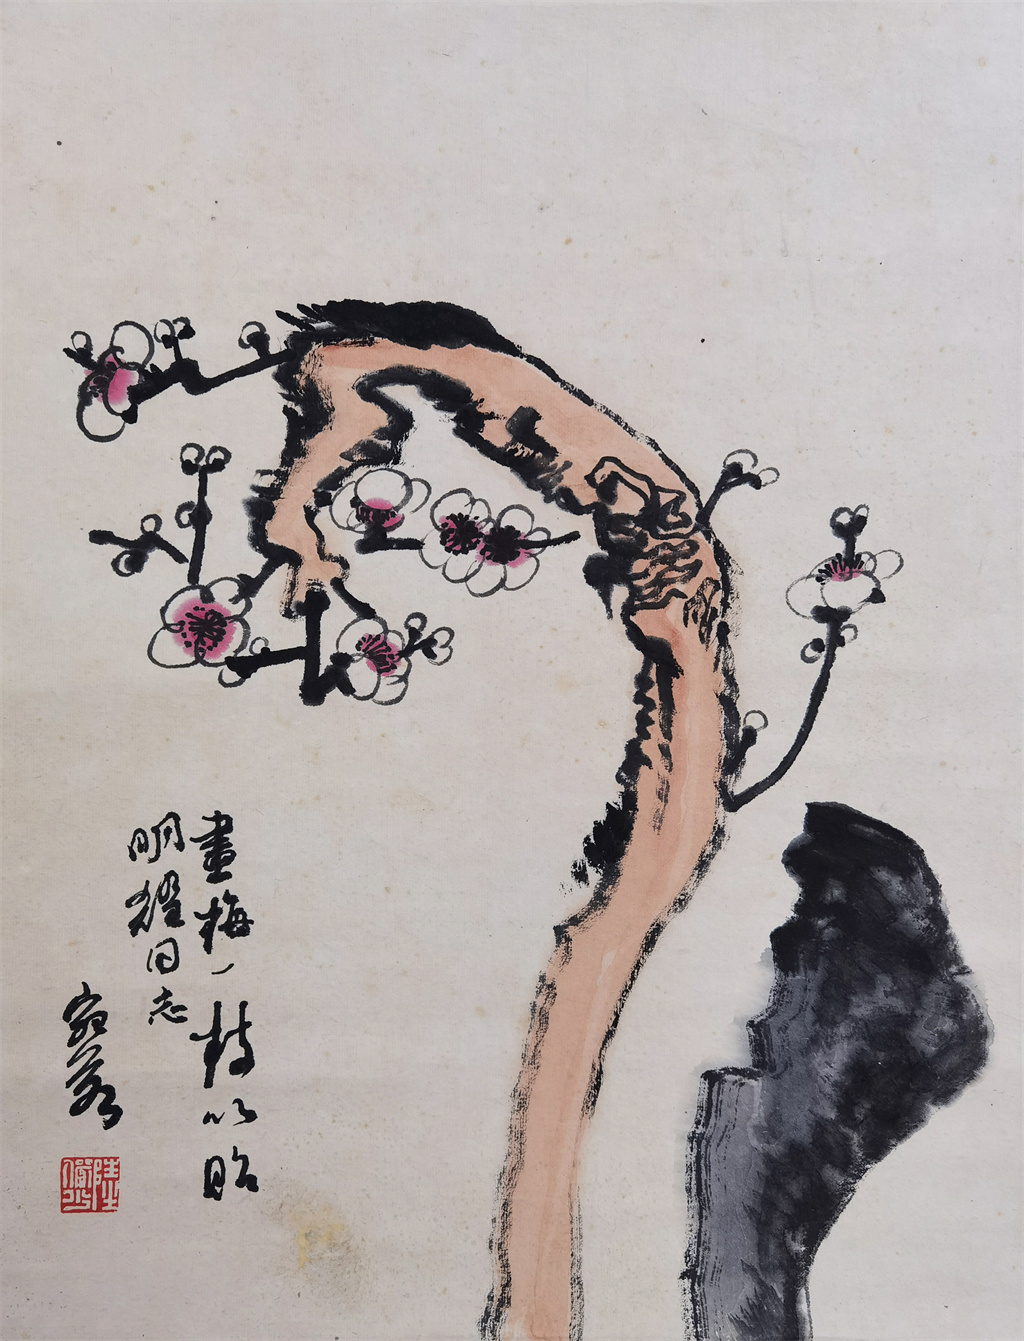 畫梅一枝以貽
明耀同志
宛若
陸儼少